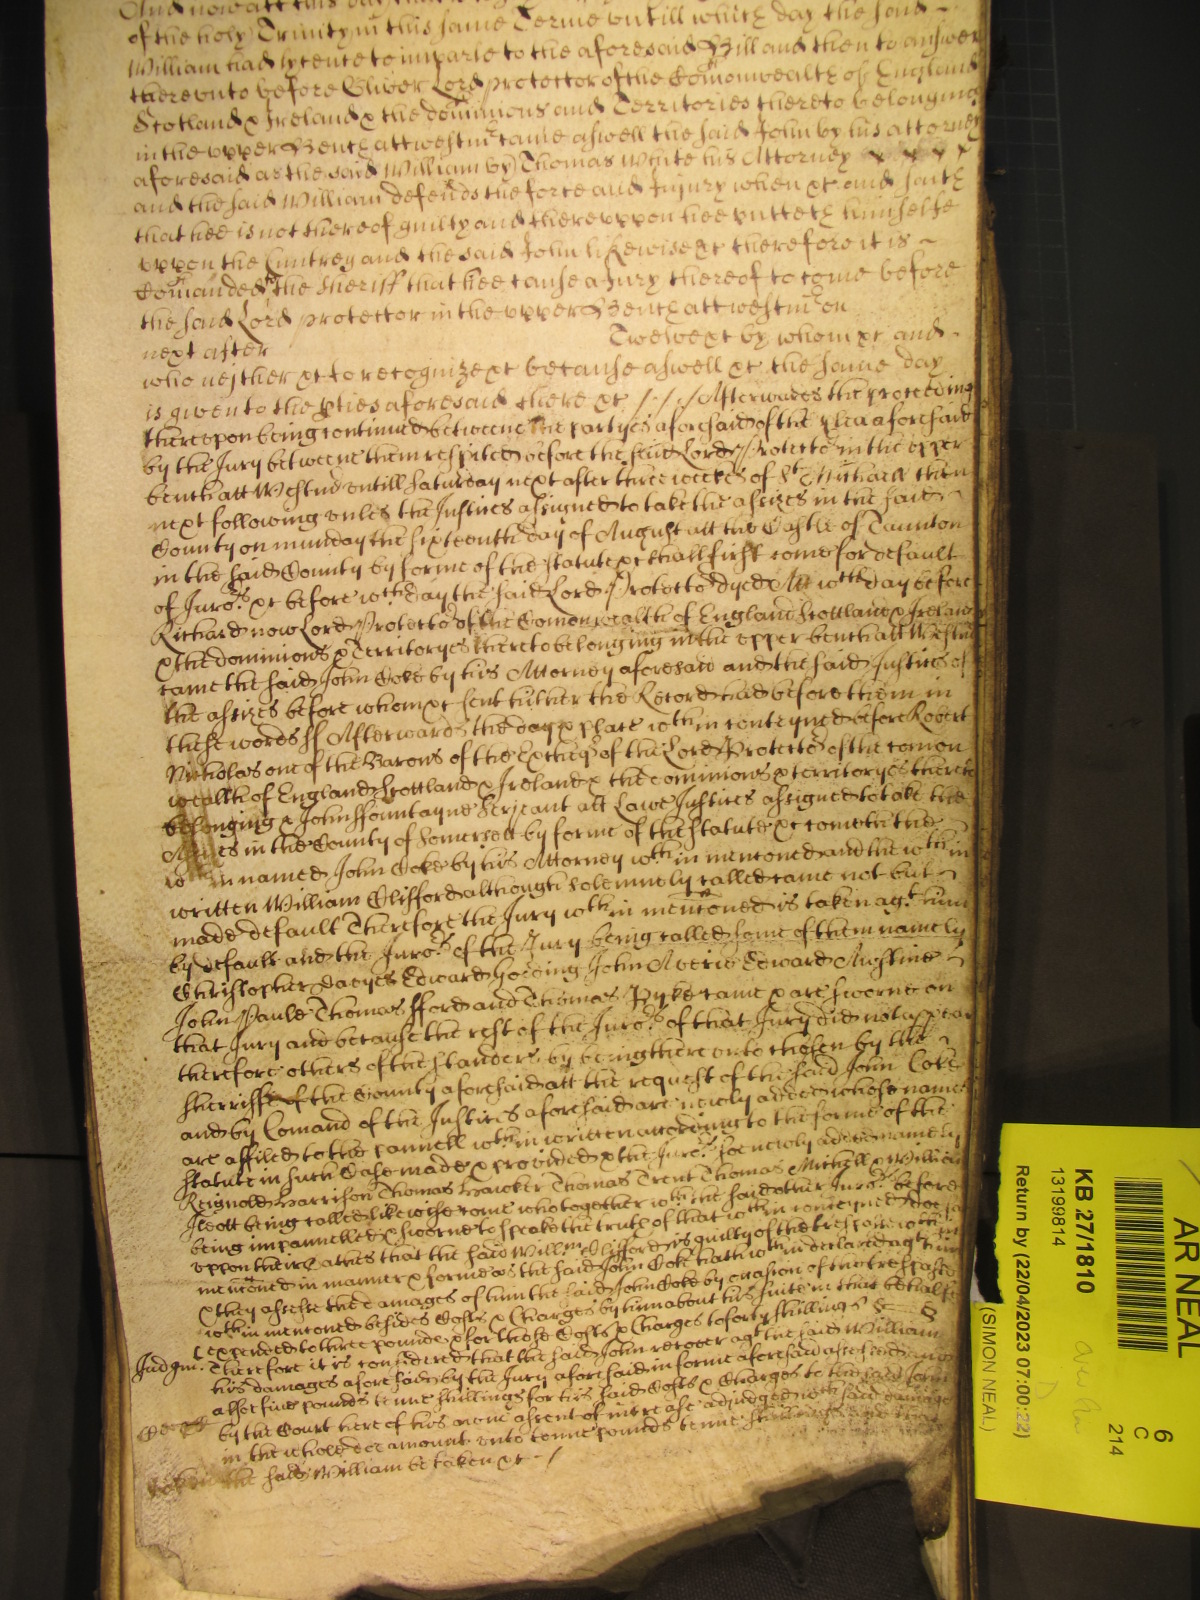 And now att this day
of the holy Trinity in this same Terme untill which day the said
William had lycence to imparle to the aforesaid Bill and then to answer
thereunto before Oliver Lord protector of the Comonwealth of England
Scotland & Ireland & the dominions and Territories thereto belonging
in the upper Bench att westmr came aswell the said John by his attorney
aforesaid as the said William by Thomas White his Attorney
and the said William defends the force and Injury when &c and saith
that hee is not thereof guilty and thereuppon hee putteth himselfe
uppon the Cuntrey and the said John likewise &c therefore it is
Comanded the Sheriff that hee cause a Jury thereof to come before
the said Lord protector in the upper Bench att westmr on
next after Twelve &c by whom &c and
who neither &c to recognize &c because aswell &c the same day
is given to the pties aforesaid there &c /./. Afterwards the proceeding
thereupon being continued betweene the partyes aforesaid of the plea aforesaid
by the Jury betweene them respited before the said Lord Protector in the upper
bench att Westmr untill Saturday next after three weekes of St Michaell then
next following unles the Justices assigned to take the assizes in the said
County on munday the sixteenth day of August att the Castle of Taunton
in the said County by forme of the statute &c shall first come for default
of Juro:rs &c before wch day the said Lord Protector dyed Att wch day before
Richard now Lord Protector of the Comonwealth of England Scottland & Ireland
& the dominions & Territoryes thereto belonging in the upper bench att Westmr
came the said John Coke by his Attorney aforesaid and the said Justices of
the assizes before whom &c sent hither the Record had before them in
these words ss Afterwards the day & place wthin conteyned before Robert
Nicholas one of the Barons of the Excheqr of the Lord Protector of the comon
wealth of England Scottland & Ireland & the dominions & territoryes thereto
belonging & John ffountayne Serjeant att Lawe Justices assigned to take the
Assizes in the County of Somersett by forme of the statute &c cometh the
wthin named John Coke by his Attorney wthin mentioned and the wthin
written William Clifford although solemnely called came not but
made default Therefore the Jury wthin mencioned is taken agt him
by default and the Juro:rs of the Jury being called some of them namely
Christopher Davyes Edward Goreing John Averie Edward Austine
John Paule Thomas fford and Thomas Pyke came & are sworne on
that Jury and because the rest of the Juro:rs of that Jury did not appear
therefore others of the standers by being thereunto chosen by the
sherriffe of the County aforesaid att the request of the said John Coke
and by Comand of the Justices aforesaid are newly added whose names
are affiled to the pannell wthin written according to the forme of the
statute in such Case made & provided & the Juro:rs soe newly added namely
Reignold Harrison Thomas Hawker Thomas Trent Thomas Michell & William
Scott being called likewise come who together wth the said other Juro:rs before
being impannelled & sworne to speake the truth of that wthin conteyned doe say
uppon their oathes that the said Willm Clifford is guilty of the trespasse wthin
mencioned in manner & forme as the said John Coke hath wthin declared agt him
& they assesse the damages of him the said John Coke by occasion of the trespasse
wthin mencioned besides Costs & Charges by him about his suite in that behalfe
expended to three pounds & for those Costs & Charges to forty shillings
Judgmt. Therefore it is considered that the said John recover agt the said William
his damages aforesaid by the Jury aforesaid in forme aforesaid assessed
alsoe five pounds tenne shillings for his said Costs & Charges to the said John
by the Court here of his owne assent of increase adjudged wch said damages
in the whole doe amount unto tenne pounds tenne shillings
the said William be taken &c /
AR NEAL
6
C
214
KB 27/1810
13199814
Return by (22/04/2023 07:00:22)
(SIMON NEAL)